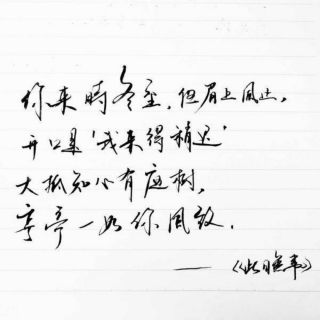 你来時冬至，但眉上风止，
开口是‘我来得稍迟’
大抵知心有庭树，
亭亭一如你风致．
——